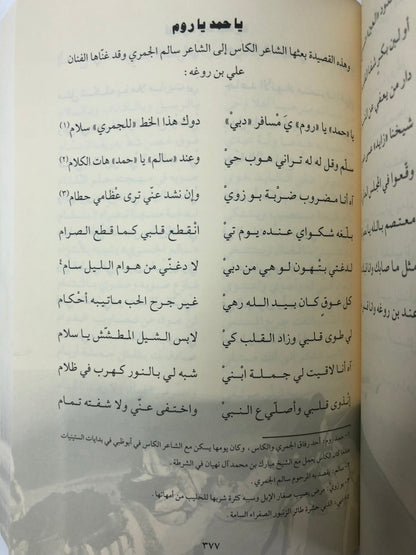 يا حمد يا روم
وهذه القصيدة بعثها الشاعر الكاس إلى الشاعر سالم الجمري وقد غنّاها الفنان
علي بن روغه :
يا «حمد» يا «روم» يَ مسافر «دبيْ» دوك هذا الخط «للجمري» سلام (١)
سلّم وقل له له تراني هوب حيْ وعند «سالم» يا «حمد» هات الكلام (٢)
آه أنا مضروب ضربة بو زويْ وإن نشد عنّي ترى عظامي حطام (٣)
بلّغه شكواي عنده يوم تيْ انْقطع قلبي كما قطع الصرام
لدغتني بتْهون لو هي من دبيْ لا دغتني من هوام الليل سام
كل عوقٍ كان بيد الله رهيْ غير جرح الحب ماتيبه أحْكام
لي طوى قلبي وزاد القلب كيْ لابس الشيل المطشّش يا سلام
آه أنا لاقيت لي جملة ابْنيْ شبه لي بالنور كهرب في ظلام
انْذوى قلبي وأصلّي ع النبيْ واختفى عنّي ولا شفته تمام
١- حمد روم: أحد رفاق الجمري والكاس، وكان يومها يسكن مع الشاعر الكاس في أبوظبي في بدايات الستينيات
عندما كان الكاس يعمل مع الشيخ مبارك بن محمد آل نهيان في الشرطة.
٢- سالم: يقصد به المرحوم سالم الجمري.
بو زوي: مرض يصيب صغار الإبل وسببه كثرة شربها للحليب من أمهاتها.
الصفراء السامة.
٣٧٧